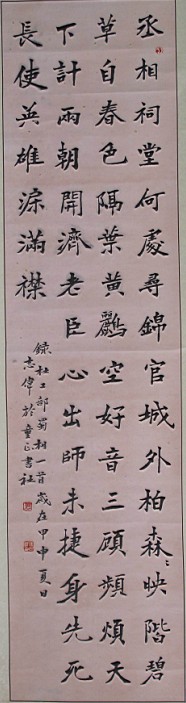 丞相祠堂何處尋錦官城外柏森〻映階碧
草自春色隔葉黃鸝空好音三顧頻煩天
下計兩朝開濟老臣心出師未捷身先死
長使英雄淚滿襟
錄杜工部蜀相一首歲在甲申夏日
志偉於童正書社